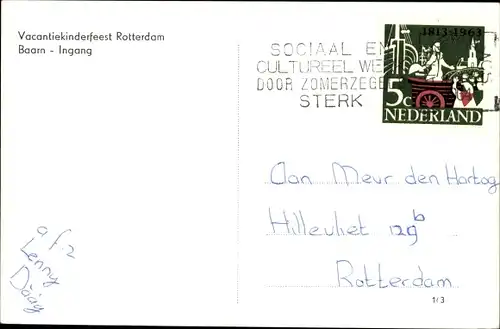 Vacantiekinderfeest Rotterdam
Baarn - Ingang
SOCIAAL EN
CULTUREEL WE
DOOR ZOMERZEGE
STERK
1813-1963
5c
NEDERLAND
Aan Mevr. den Hartog
Hillevliet 129b
Rotterdam
afz
Lenny
Dáág
1/3